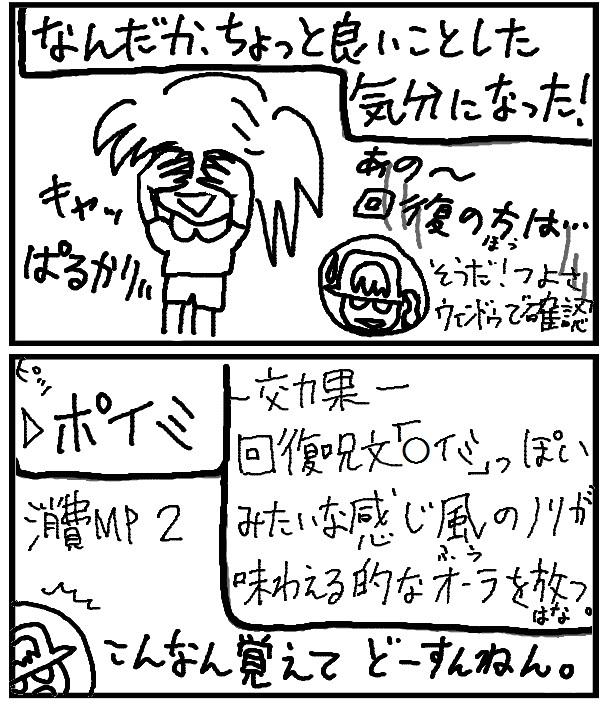 なんだか、ちょっと良いことした
気分になった!
あの〜
回復の方は…
ほう
キャッ
ぱるかりッ
そうだ!つよさ
ウィンドゥで確認
ピッ
▷ポイミ
ー効果ー
回復呪文「○イミ」っぽい
みたいな感じ風のノリが
味わえる的なオーラを放つ。
ふう
はな
消費MP 2
こんなん覚えて どーすんねん。